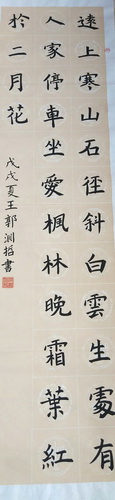 遠上寒山石徑斜白雲生處有
人家停車坐愛楓林晚霜葉紅
於二月花
戊戌夏王郭淵哲書